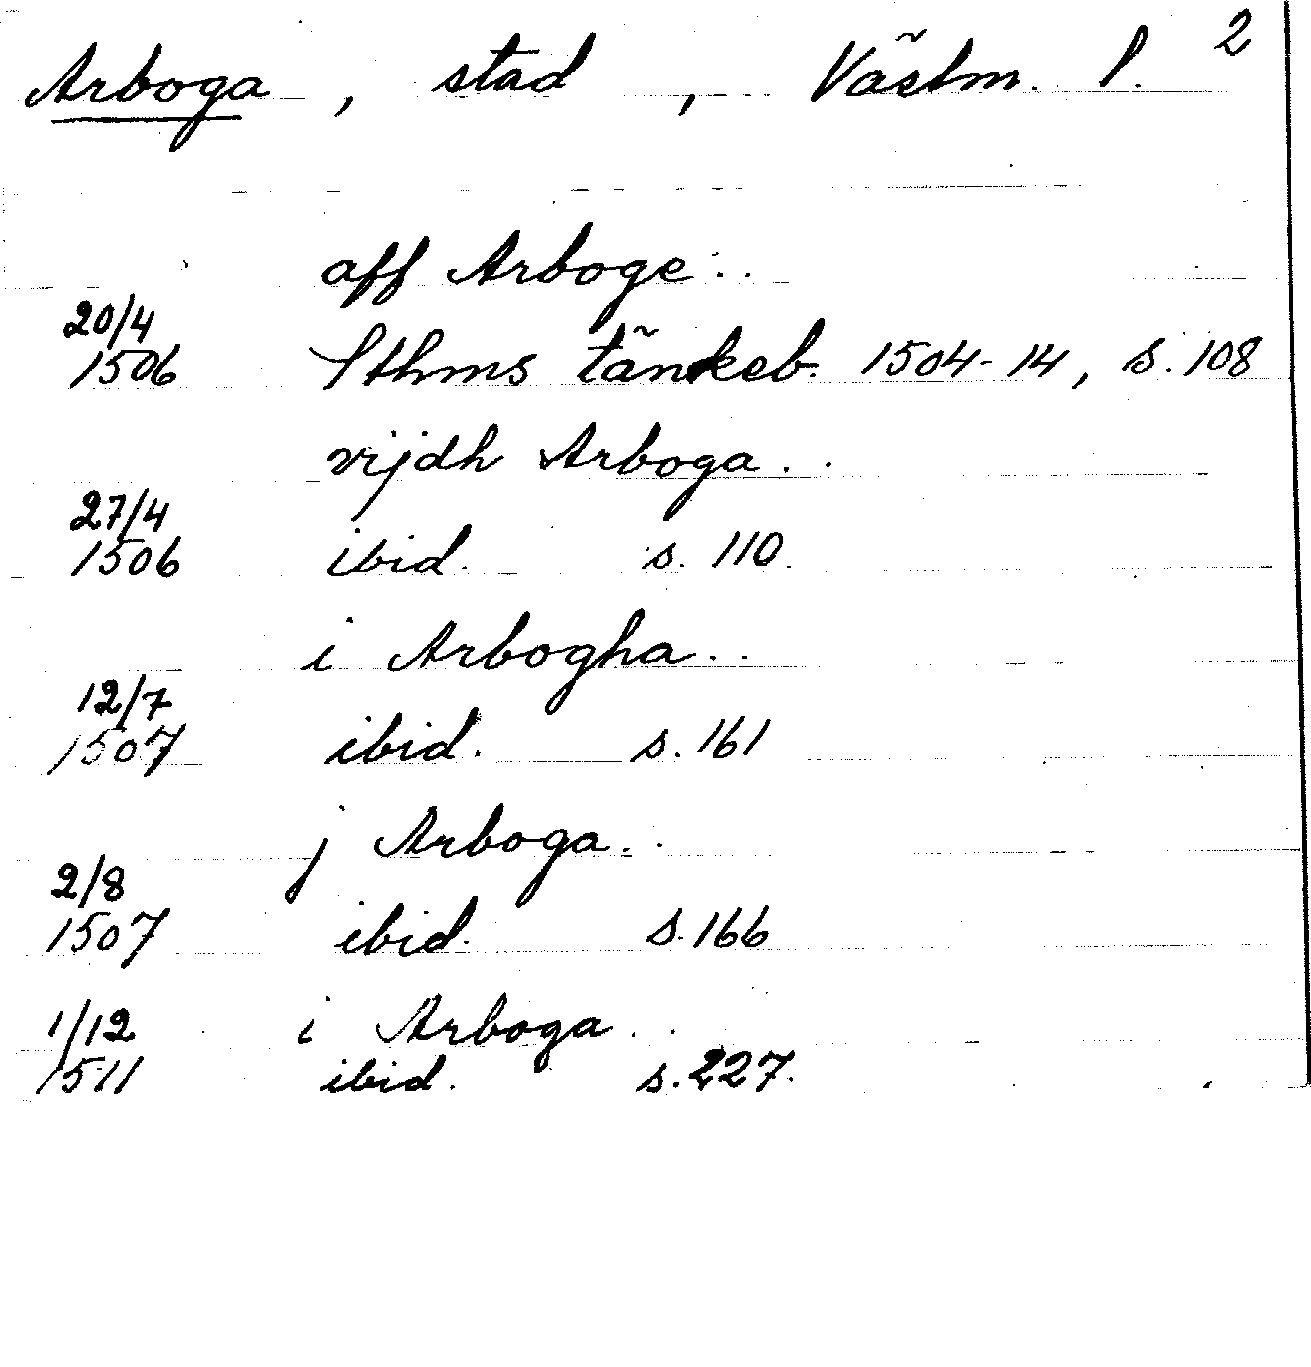 Arboga, stad, Västm. l. 2
aff Arboge..
20/4
1506 Sthms tänkeb. 1504-14, s. 108
vijdh Arboga..
27/4
1506 ibid. s. 110.
i Arbogha..
12/7
1507 ibid. s. 161
j Arboga..
2/8
1507 ibid. s. 166
1/12 i Arboga..
1511 ibid. s. 227.